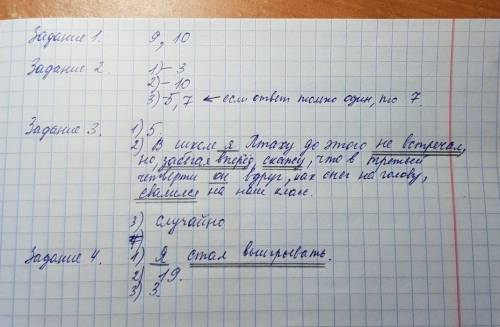 Задание 1. 9, 10
Задание 2. 1) – 3
2) – 10
3) – 5, 7 ← если ответ только один, то 7.
Задание 3. 1) 5.
2) В школе я Птаху до этого не встречал,
но, забегая вперёд, скажу, что в третьей
четверти он вдруг, как снег на голову,
свалился на наш класс.
3) случайно
Задание 4. 1) Я стал выигрывать.
2) 19.
3) 3.